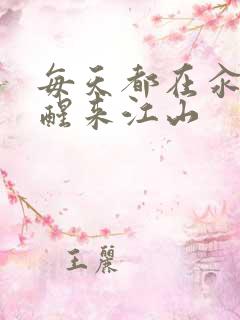 每天都在汆
醒来江山
王丽